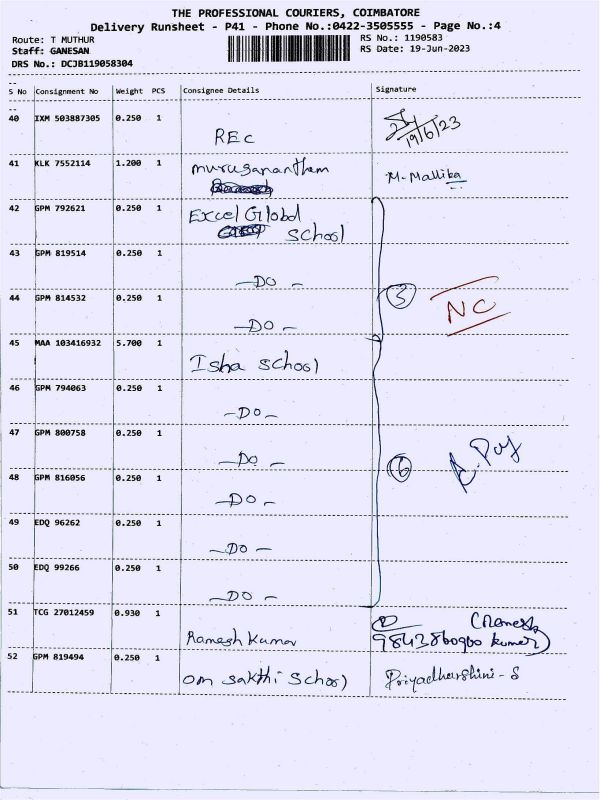 THE PROFESSIONAL COURIERS, COIMBATORE
Delivery Runsheet - P41 - Phone No.:0422-3505555 - Page No.:4
Route: T MUTHUR RS No.: 1190583
Staff: GANESAN RS Date: 19-Jun-2023
DRS No.: DCJB119058304
S No Consignment No Weight PCS Consignee Details Signature
40 IXM 503887305 0.250 1 REC 19/6/23
41 KLK 7552114 1.200 1 muruganantham M. Mallika
42 GPM 792621 0.250 1 Excel Global
School
43 GPM 819514 0.250 1 -DO-
44 GPM 814532 0.250 1 -DO- 3 NC
45 MAA 103416932 5.700 1 Isha School
46 GPM 794063 0.250 1 -DO-
47 GPM 800758 0.250 1 -DO- 6
48 GPM 816056 0.250 1 -DO-
49 EDQ 96262 0.250 1 -DO-
50 EDQ 99266 0.250 1 -DO-
51 TCG 27012459 0.930 1 Ramesh Kumar (Ramesh
kumar)
52 GPM 819494 0.250 1 Om Sakthi School Priyadharshini - S